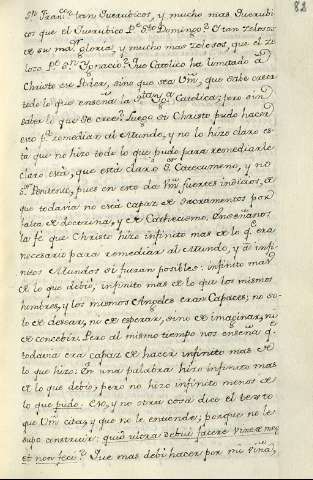 82
Sn. Franco. tan Querubicos, y mucho mas Querubi-
cos que el Querubico Pe. Sto. Domingo? O tan zelosos
de su mas gloria, y mucho mas zelosos, que el ze-
loso Pe. Sn. Ignacio? Que Catolico ha limitado a
Christo ese poder, sino que sea Vm, que sabe creer
todo lo que enseña la Sta. Yga. Catolica; pero sin
saber lo que se cree? Luego si Christo pudo hacer
esto pa. remediar al Mundo, y no lo hizo claro es-
ta que no hizo todo lo que pudo para remediarle
Claro está, que está claro Sr. Catecumeno, y no
Sr. Penitente, pues en esto da Vm. fuertes indicios, de
que todavia no está capaz de Sacramentos por
falta de doctrina, y de Cathecismo. Enseñanos
la fé que Christo hizo infinito mas de lo q. era
necesario para remediar al Mundo, y a infi-
nitos Mundos si fueran posibles: infinito mas
de lo que debio, infinito mas de lo que los mismos
hombres, y los mismos Angeles eran Capaces; no so-
lo de desear, ni de esperar, sino de imaginar, ni
de concebir. Pero al mismo tiempo nos enseña qe.
todavia era capaz de hacer infinito mas de
lo que hizo. En una palabra hizo infinito mas
de lo que debio; pero no hizo infinito menos de
lo que pudo. Ese, y no otra cosa dice el texto
que Vm. cita, y que no le entiende; porque no le
supo construir: quid ultra debui facere Vineæ meæ,
et non feci? Que mas debí hacer por mi Viña,